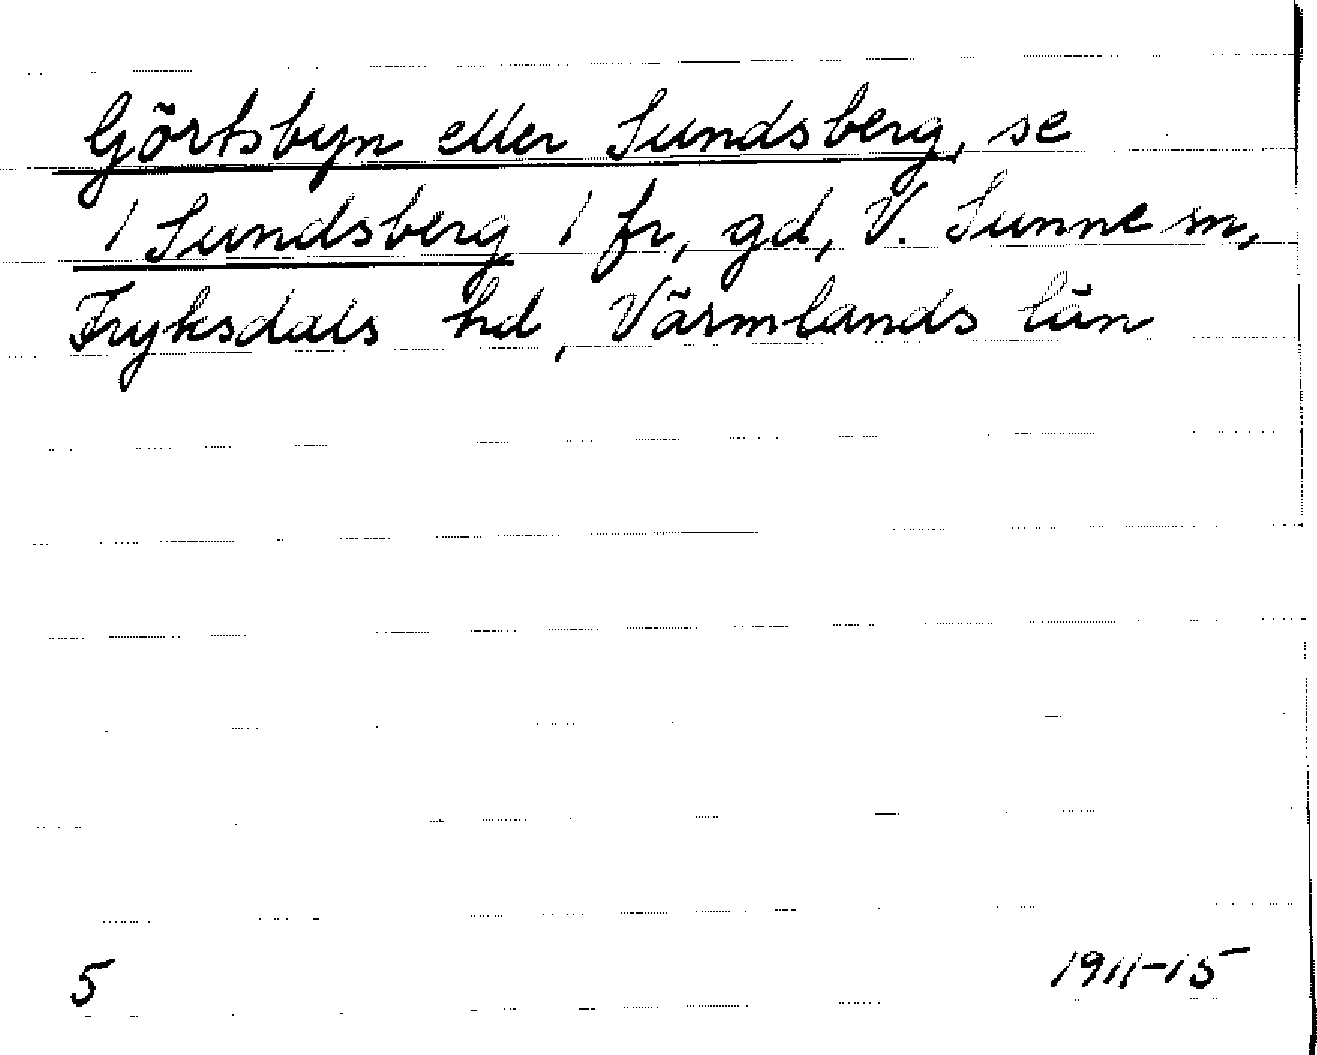 Görtsbyn eller Sundsberg, se
/ Sundsberg / fr, gd, V. Sunne sn,
Fryksdals hd, Värmlands län
5 1911-15